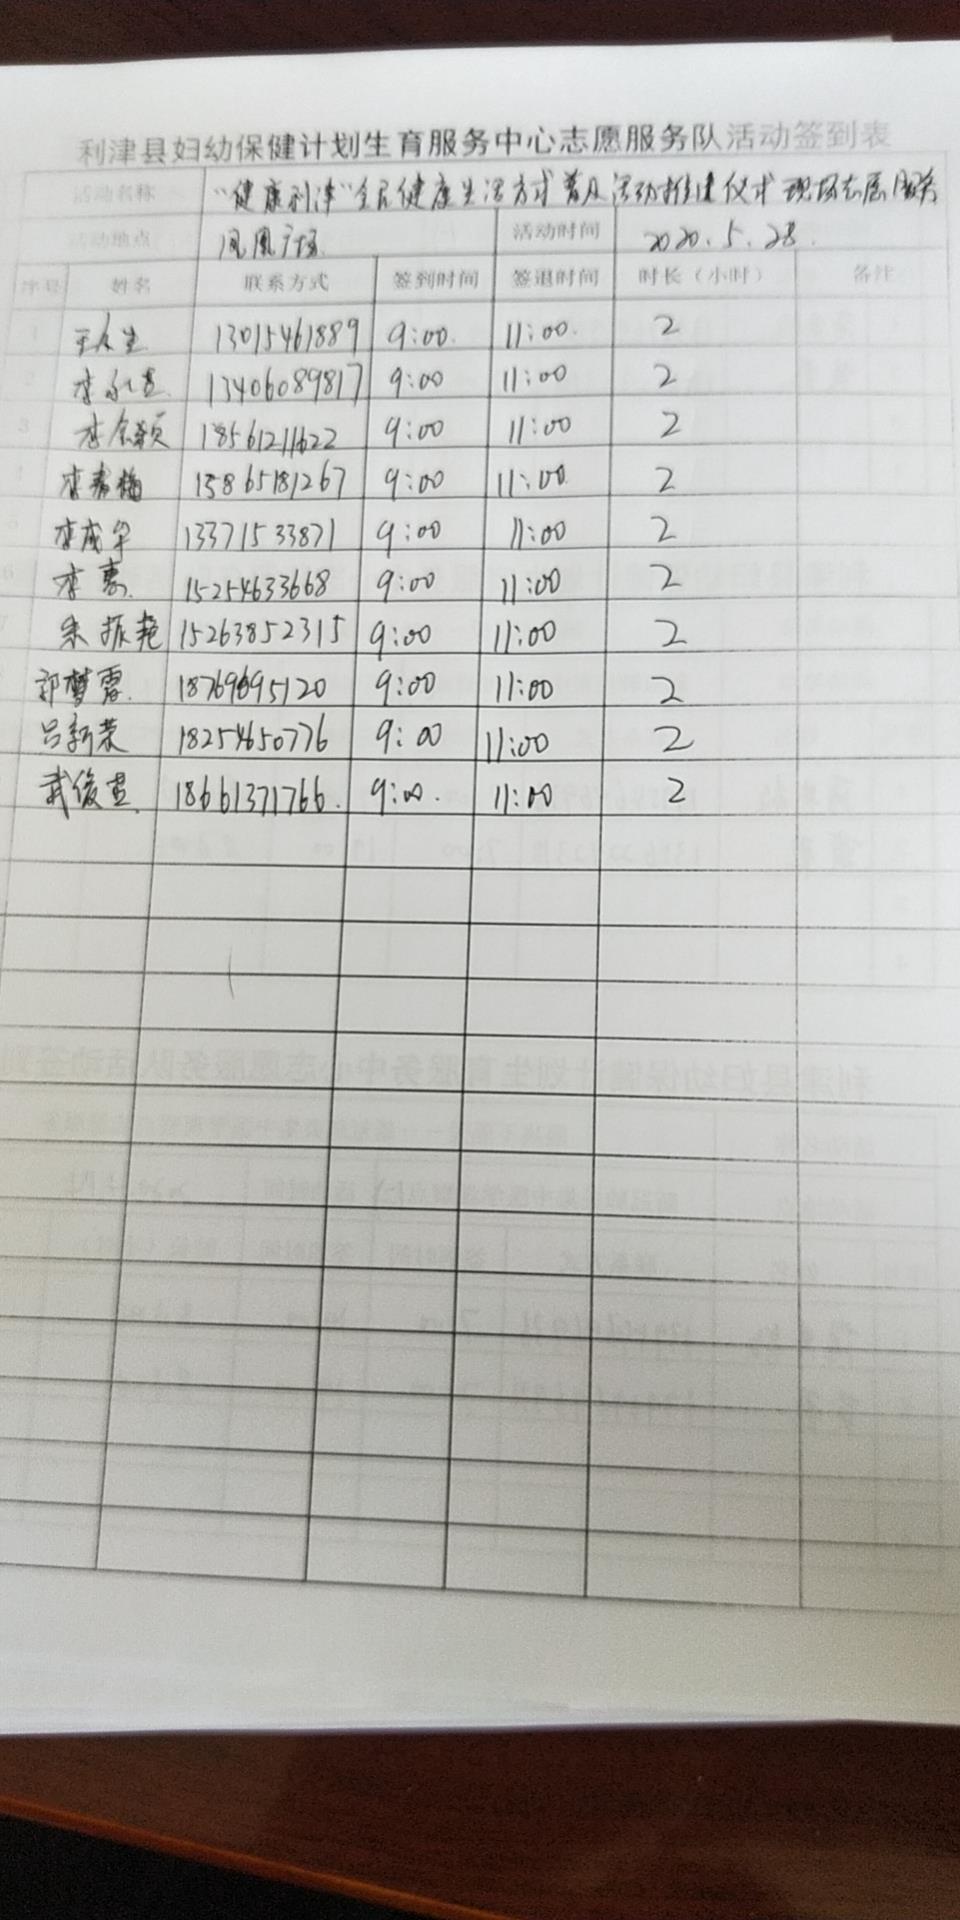 利津县妇幼保健计划生育服务中心志愿服务队活动签到表
活动名称 "健康利津"全民健康生活方式普及活动推进仪式现场志愿服务
活动地点 凤凰广场 活动时间 2020.5.28.
序号 姓名 联系方式 签到时间 签退时间 时长（小时） 备注
1 13015461889 9:00. 11:00. 2
2 13406089817 9:00 11:00 2
3 18561211622 9:00 11:00 2
李秀梅 15865181267 9:00 11:00 2
5 李成华 13371533871 9:00 11:00 2
6 李惠 15254633668 9:00 11:00 2
7 宋振艳 15263852315 9:00 11:00 2
郭梦露 18769695120 9:00 11:00 2
吕新荣 18254650776 9:00 11:00 2
武俊英 18661371766. 9:00. 11:00 2